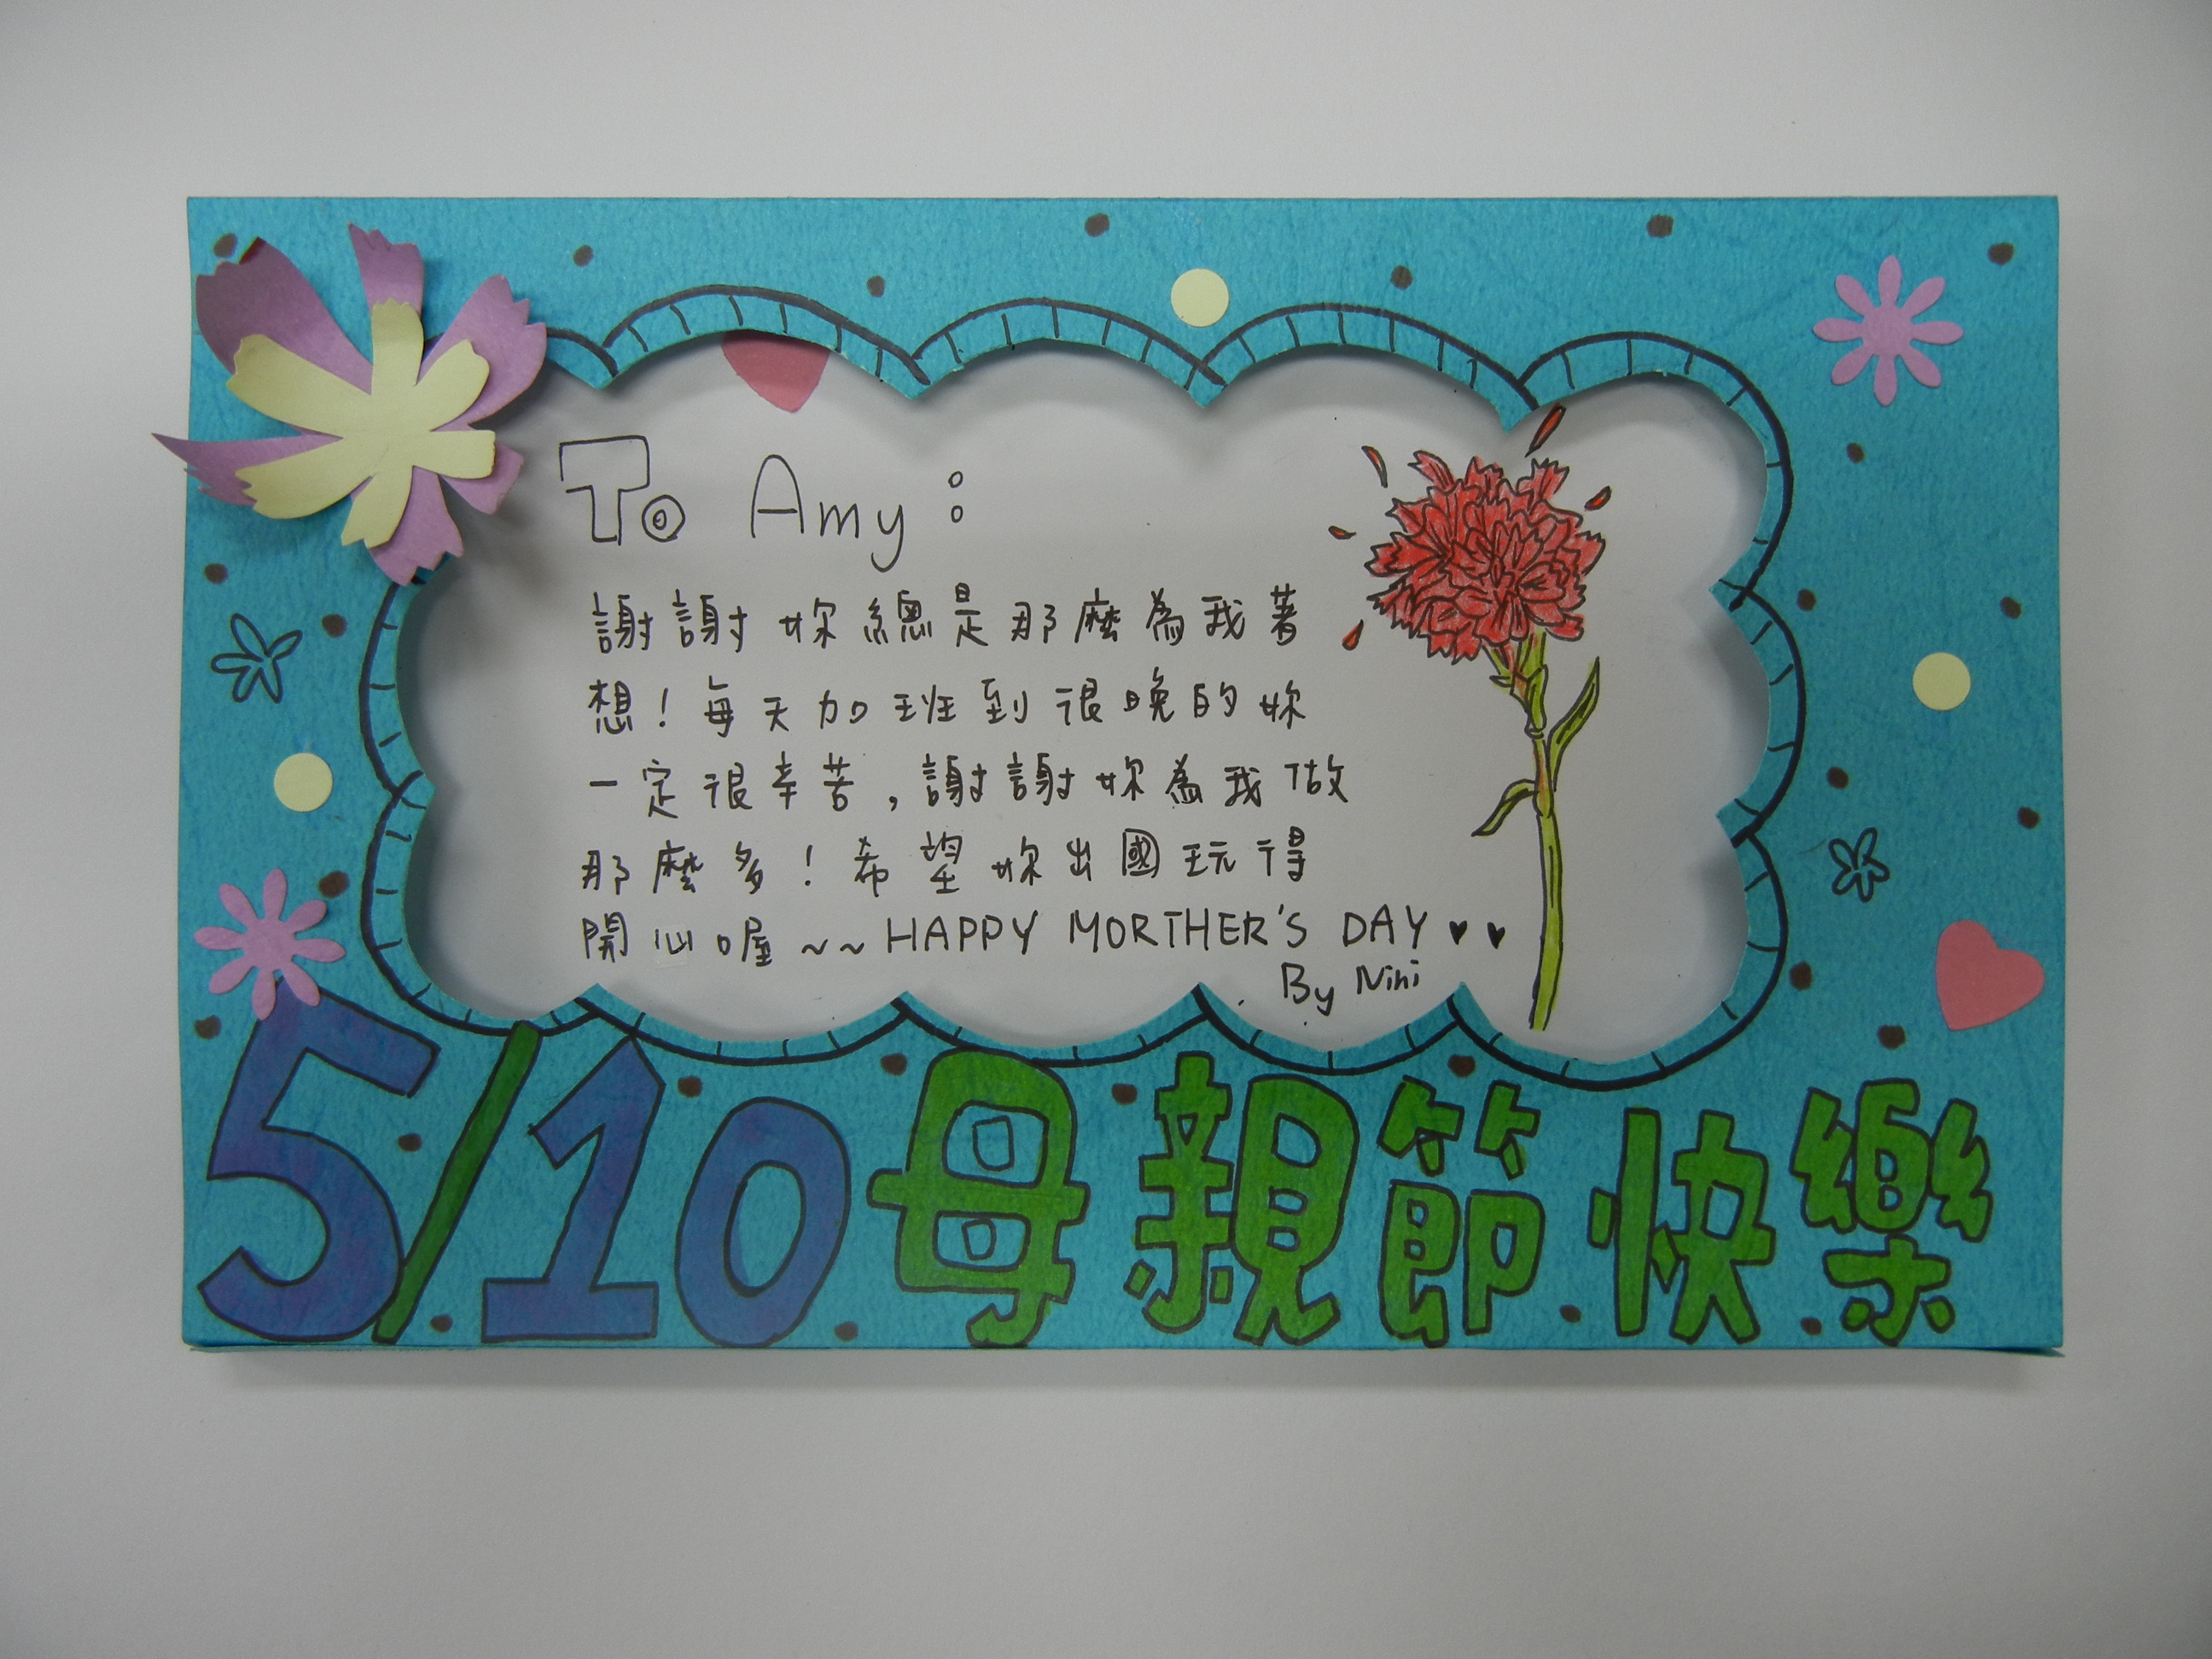 To Amy：
謝謝妳總是那麼為我著
想！每天加班到很晚的妳
一定很辛苦，謝謝妳為我做
那麼多！希望妳出國玩得
開心喔~~HAPPY MORTHER'S DAY♥♥
By Nini
5/10母親節快樂